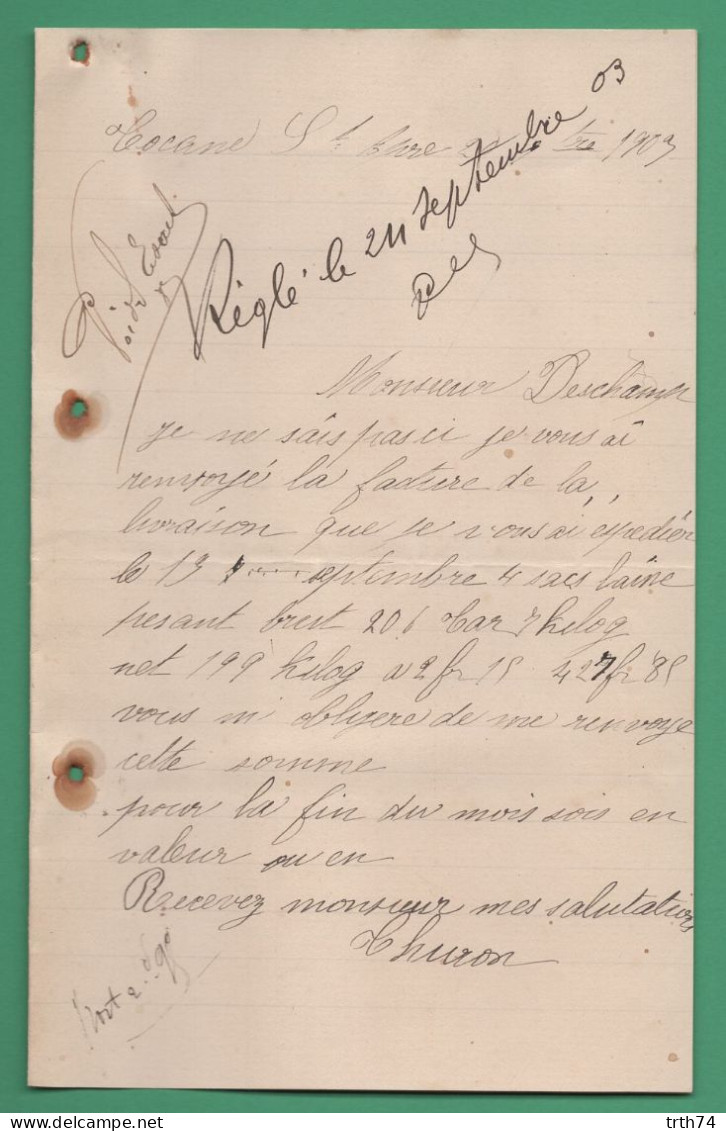 Cocane St 1903
Réglé le 24 septembre 03
Monsieur Deschamp
je ne sais pas ci je vous ai
renvoyé la facture de la
livraison que je vous ai expedier
le 13 septembre 4 sacs laine
pesant brut 206 tar 7 kilog
net 199 kilog a 2 fr 15 427 fr 85
vous m obligere de me renvoye
cette somme
pour la fin du mois sois en
valeur ou en
Recevez monsieur mes salutations
Thuron
Port 2.90
trth74